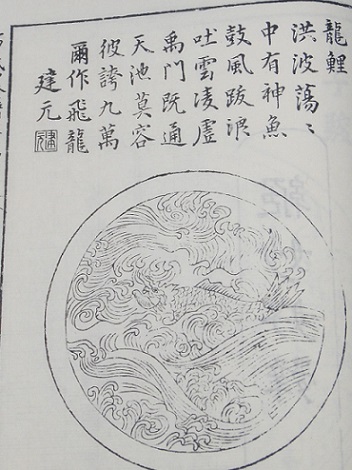 龍鯉
洪波蕩〻
中有神魚
鼓風跋浪
吐雲凌虛
禹門既通
天池莫容
彼誇九萬
爾作飛龍
建元